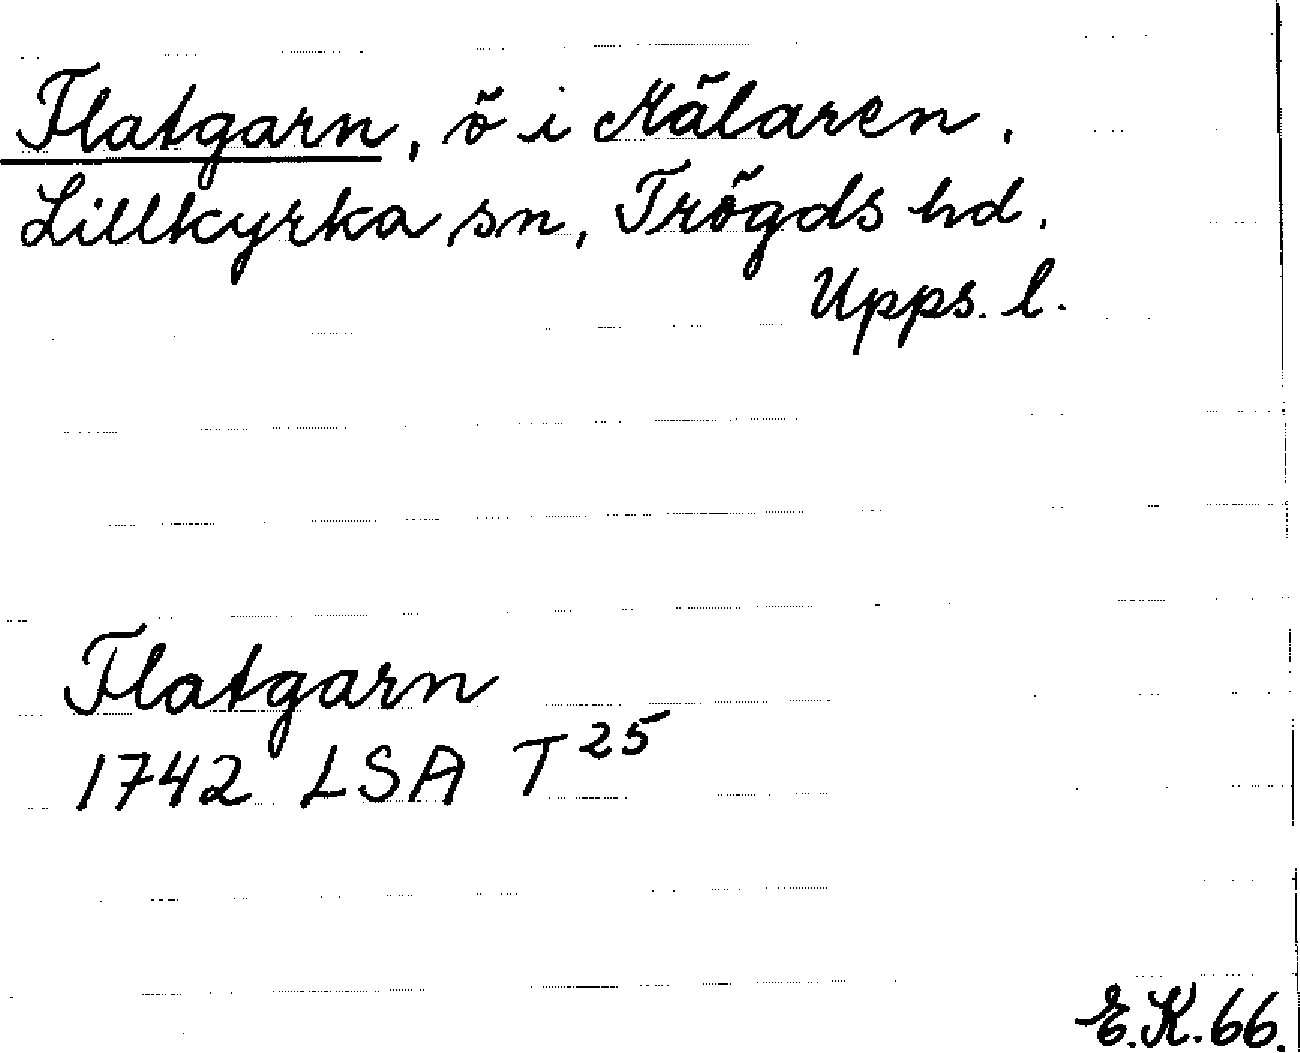 Flatgarn, ö i Mälaren.
Lillkyrka sn, Trögds hd.
Upps. l.
Flatgarn
1742 LSA T25
E.K.66.